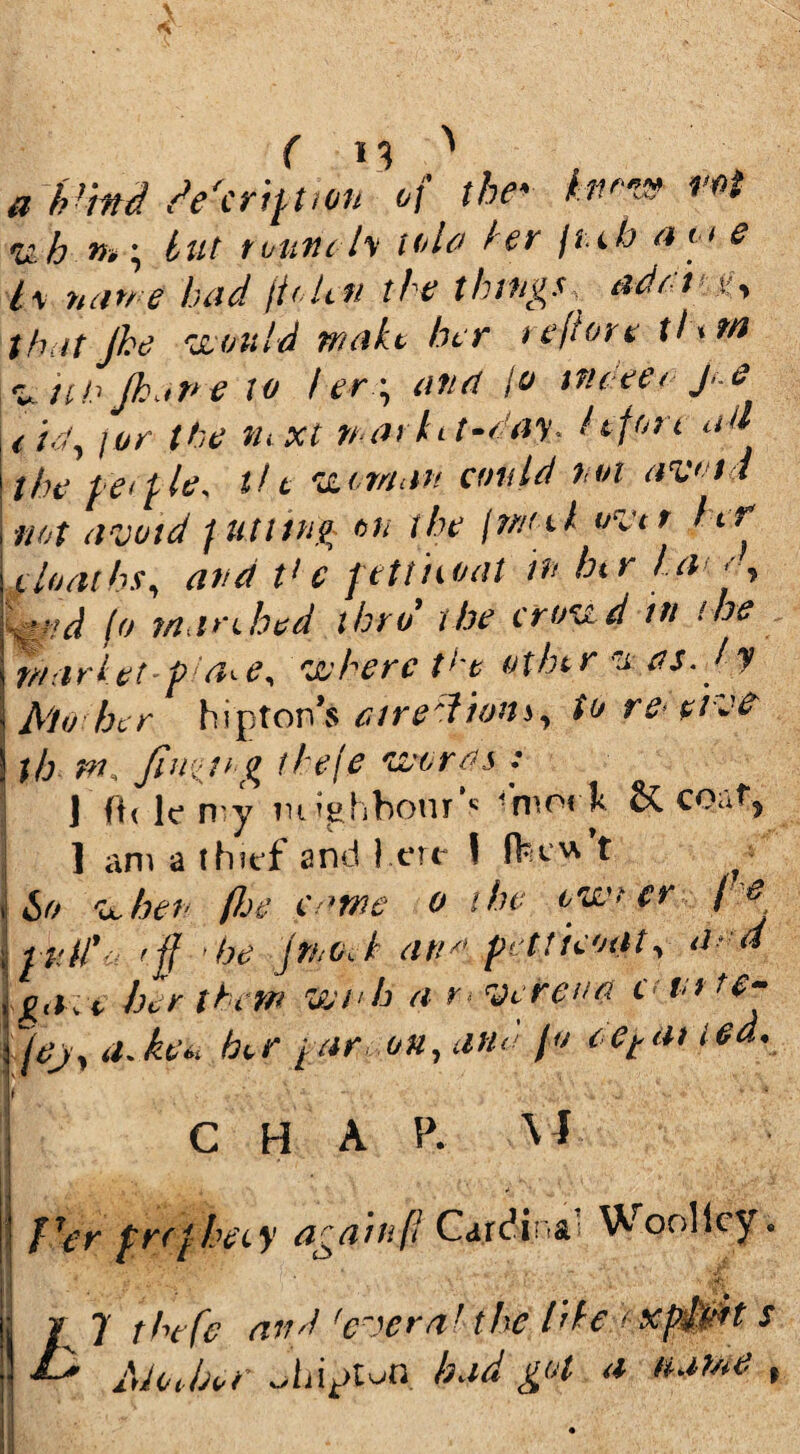 ( 13 )
a kind description of the* knew not
wh m; but roundly told her such a one
by name had stolen the things, adding,
that she would make her restore them
with shame to her; and so indeed she
did, for the next market-day, before all
the people, the woman could not avoid
not avoid putting on the smock over her
cloaths, and the petticoat in her hand,
and so marched thro' the crowd in the
market-place, where the other was. by
Mother hipton's directions, to receive
th m, singing these words :
I stole my neighbour's smock & coat,
I am a thief and here I shew't
So when she come o the owner she
pull'd off he smock and petticoat, and
gave her them with a reverena courte-
sey, a ked her pardon, and so departed.
CHAP. VI
Her prophecy against Cardinal Woolsey.
BY these and several the like exploits
Mother Shipton had got a name,